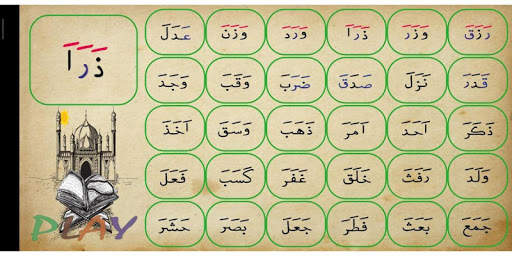 ذَرَاَ
رَزَقَ وَزَرَ ذَرَاَ وَرَدَ وَزَنَ عَدَلَ
قَدَرَ نَزَلَ صَدَقَ ضَرَبَ وَقَبَ وَجَدَ
ذَكَرَ اَحَدَ اَمَرَ ذَهَبَ وَسَقَ اَخَذَ
وَلَدَ رَفَثَ خَلَقَ غَفَرَ كَسَبَ فَعَلَ
جَمَعَ بَعَثَ فَطَرَ جَعَلَ بَصَرَ حَشَرَ
PLAY